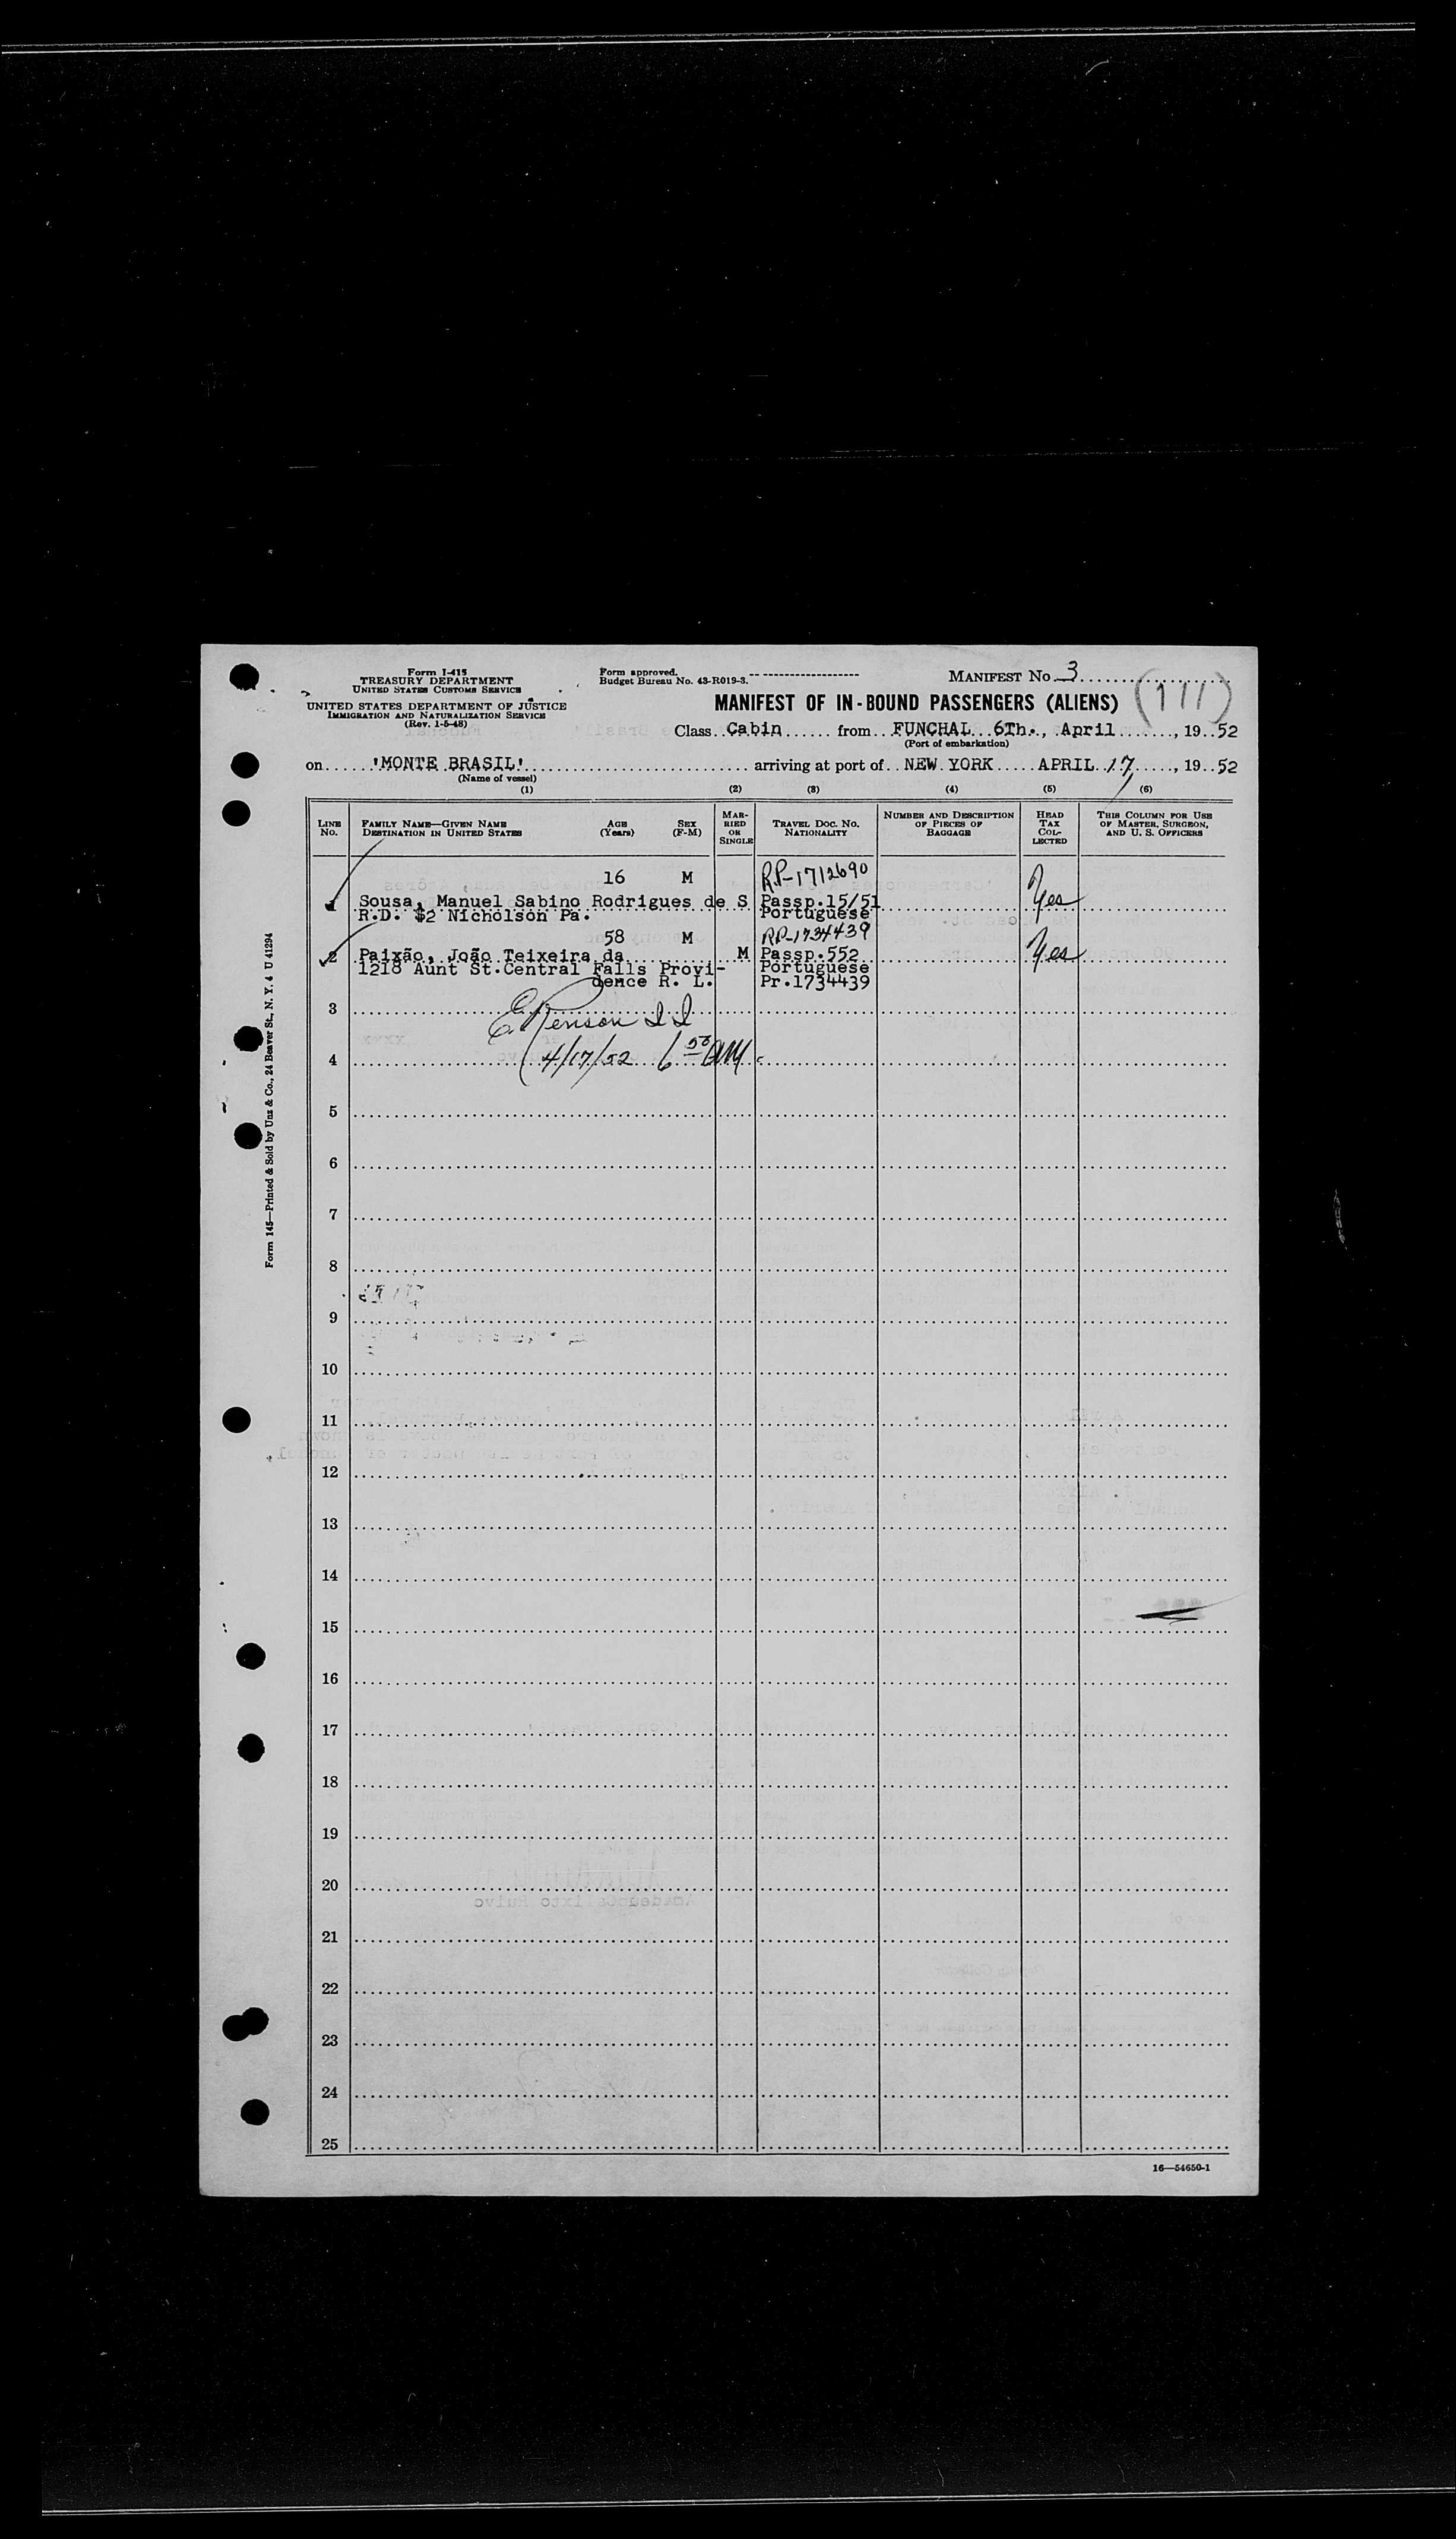 Form I-415
TREASURY DEPARTMENT
UNITED STATES CUSTOMS SERVICE
UNITED STATES DEPARTMENT OF JUSTICE
IMMIGRATION AND NATURALIZATION SERVICE
(Rev. 1-5-48)
Form approved.
Budget Bureau No. 43-R019-3.
MANIFEST No. 3
MANIFEST OF IN-BOUND PASSENGERS (ALIENS)
(111)
Class Cabin from FUNCHAL 6Th., April, 19 52
(Port of embarkation)
on 'MONTE BRASIL' arriving at port of NEW YORK APRIL 17, 19 52
(Name of vessel)
(1) (2) (3) (4) (5) (6)
LINE No. FAMILY NAME—GIVEN NAME DESTINATION IN UNITED STATES AGE (Years) SEX (F-M) MARRIED OR SINGLE TRAVEL DOC. NO. NATIONALITY NUMBER AND DESCRIPTION OF PIECES OF BAGGAGE HEAD TAX COLLECTED THIS COLUMN FOR USE OF MASTER, SURGEON, AND U. S. OFFICERS
16 M RP-1712690
1 Sousa, Manuel Sabino Rodrigues de S Passp.15/51 Yes
R.D. $2 Nicholson Pa. Portuguese
58 M RP-1734439
2 Paixão, João Teixeira da M Passp.552 Yes
1218 Aunt St.Central Falls Provi- Portuguese
dence R. L. Pr.1734439
3
4 4/17/52 6 50 AM
5
6
7
8
9
10
11
12
13
14
15
16
17
18
19
20
21
22
23
24
25
16—54650-1
Form 145—Printed & Sold by Unz & Co., 24 Beaver St., N. Y. 4 U 41294